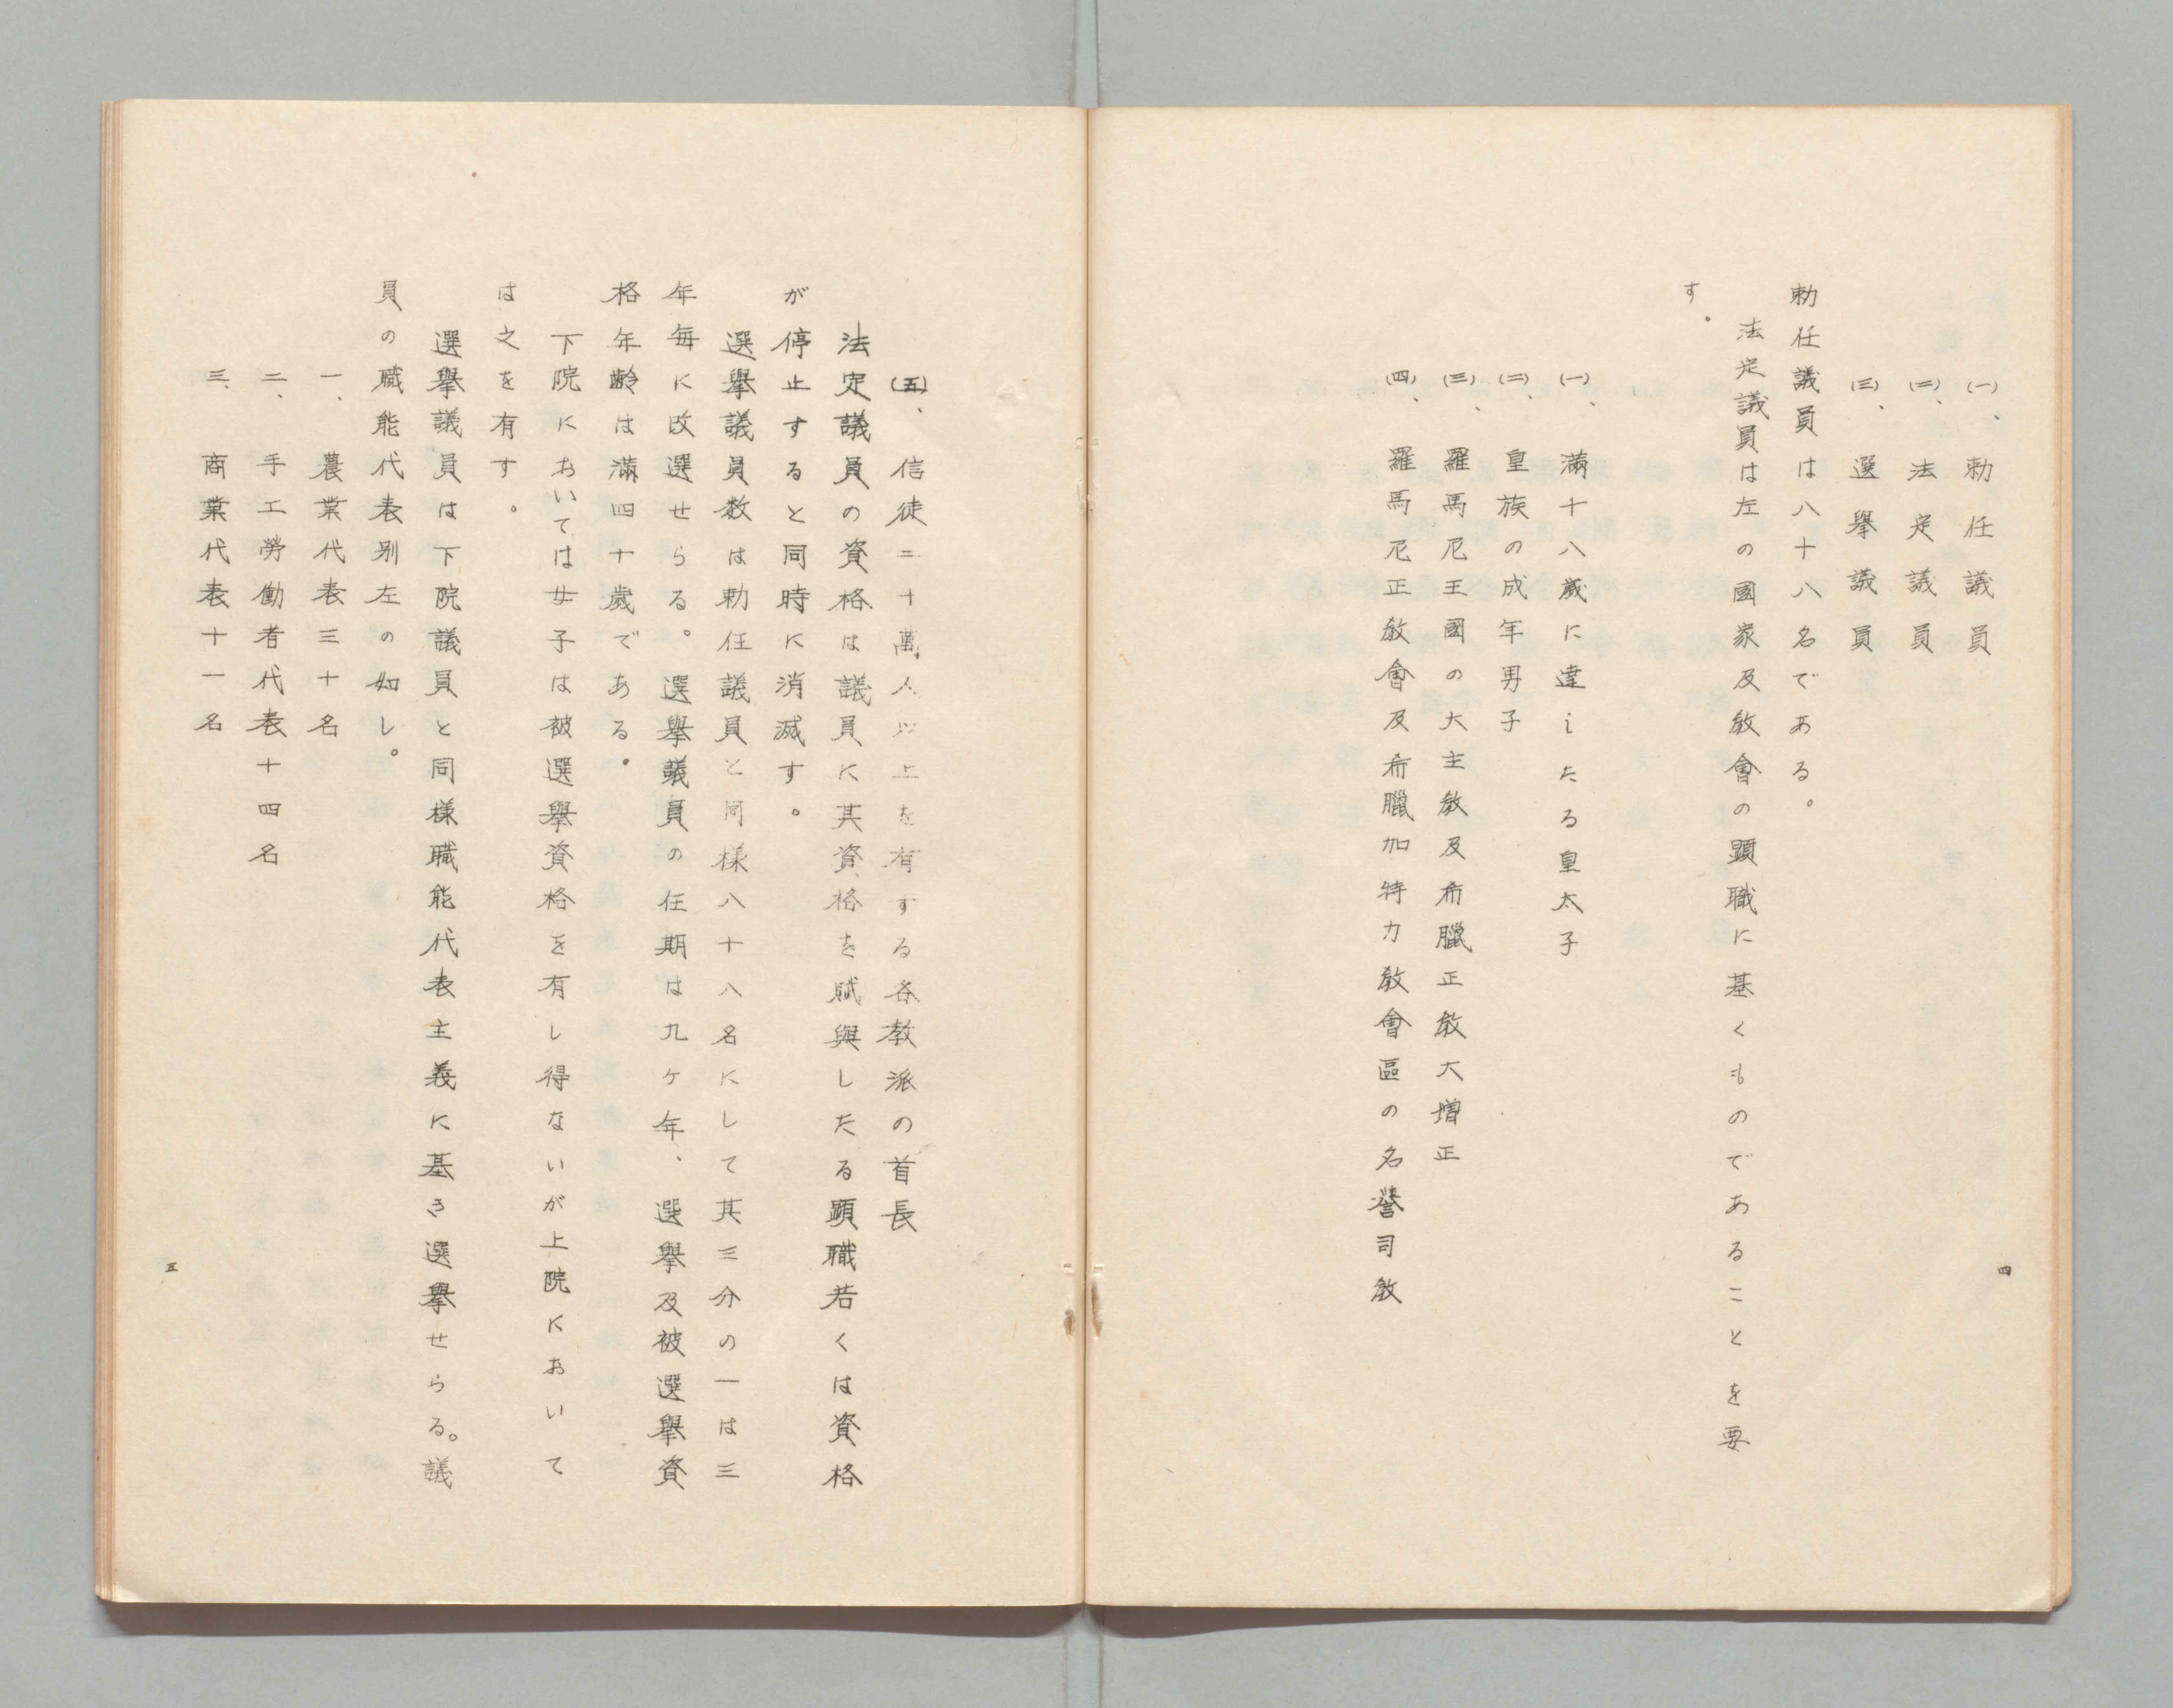 (一)、勅任議員
(二)、法定議員
(三)、選擧議員
勅任議員は八十八名である。
法定議員は左の國家及敎會の顕職に基くものであることを要
す。
(一)、滿十八歲に達したる皇太子
(二)、皇族の成年男子
(三)、羅馬尼王國の大主敎及希臘正敎大増正
(四)、羅馬尼正敎會及希臘加特力敎會區の名譽司敎
四
(五)、信徒二十萬人以上を有する各教派の首長
法定議員の資格は議員に其資格を賦與したる顕職若くは資格
が停止すると同時に消滅す。
選擧議員数は勅任議員と同様八十八名にして其三分の一は三
年毎に改選せらる。選擧議員の任期は九ケ年、選擧及被選擧資
格年齢は滿四十歲である。
下院においては女子は被選擧資格を有し得ないが上院において
は之を有す。
選擧議員は下院議員と同様職能代表主義に基き選擧せらる。議
員の職能代表別左の如し。
一、農業代表三十名
二、手工勞働者代表十四名
三、商業代表十一名
五